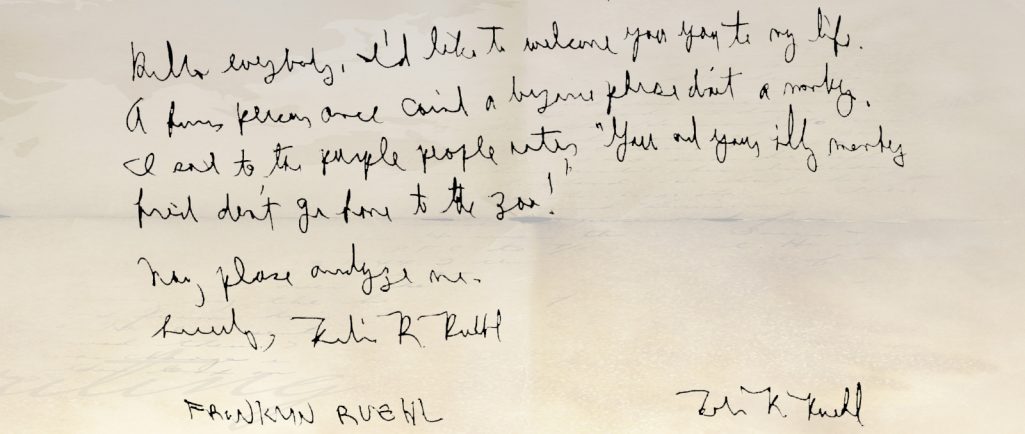 Hello everybody, I'd like to welcome you you to my life.
A funny person once coin'd a bizarre phrase about a monkey.
I said to the purple people eater, "You and your silly monkey
friend don't go home to the zoo!"
Now, please analyze me.
Sincerely, Franklin R. Ruehl
FRANKLIN RUEHL
R. Ruehl